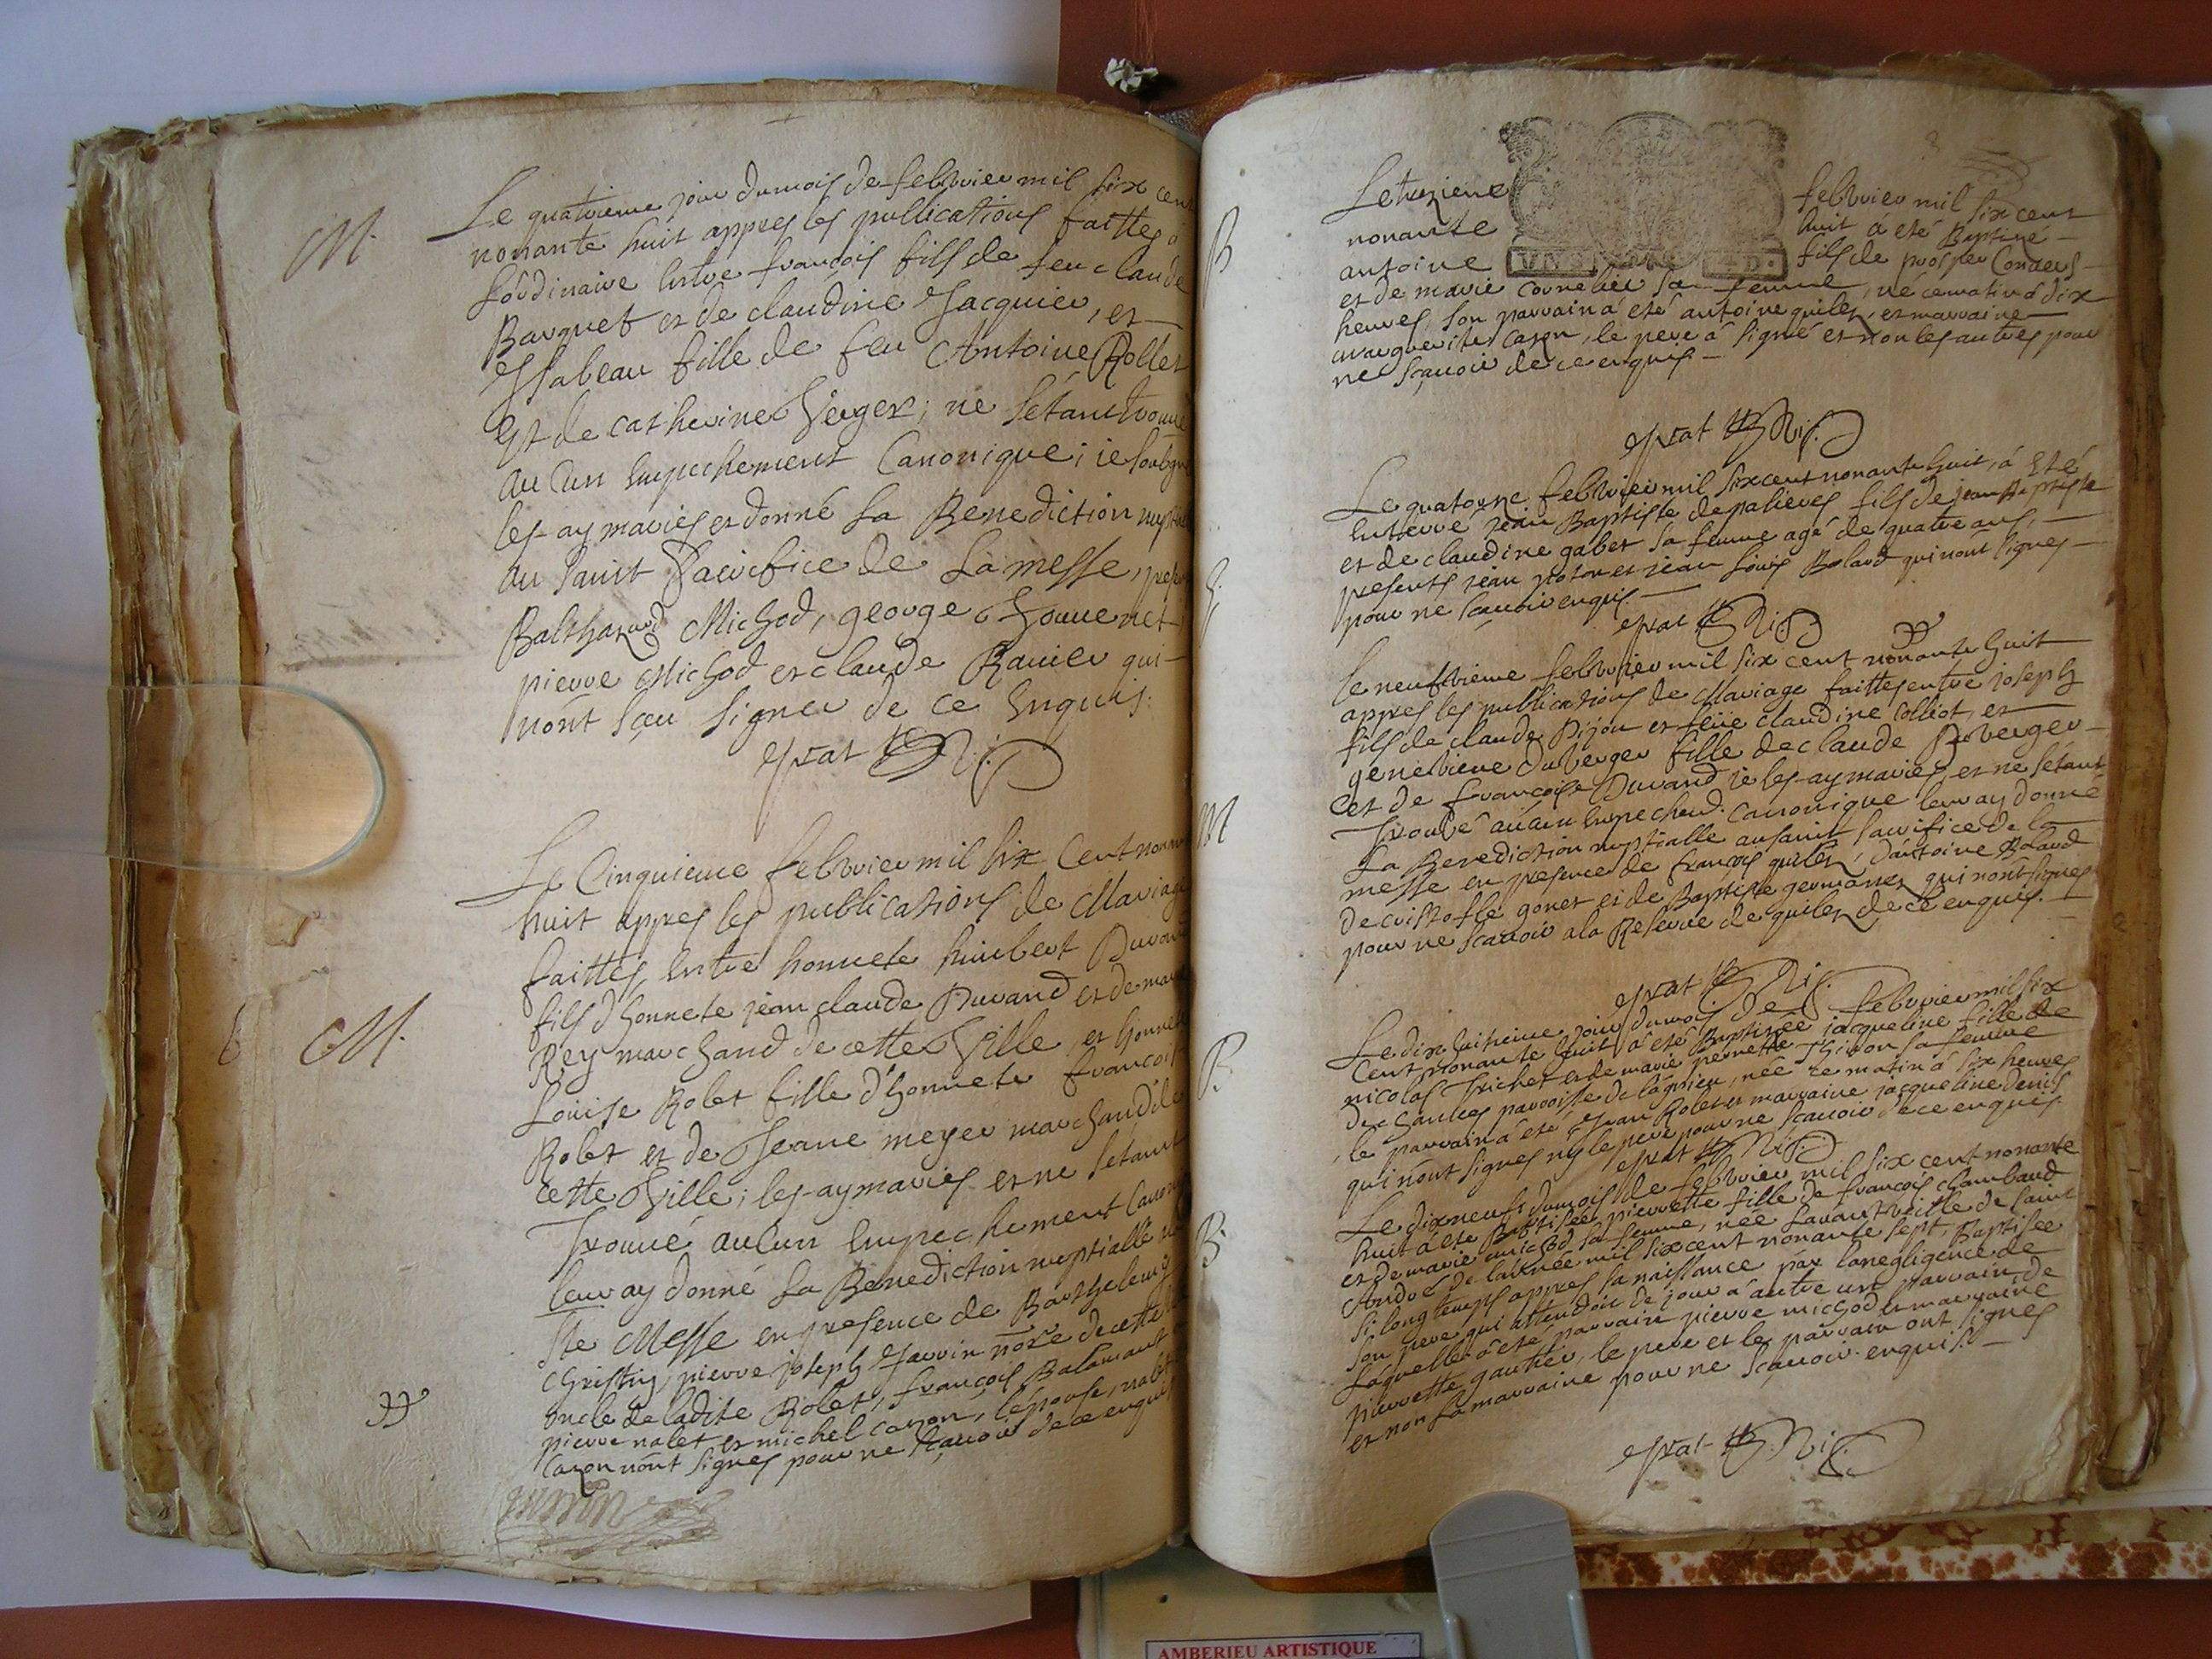 M.
Le quatrieme jour du mois de febvrier mil six cent
nonante huit appres les publications faittes à
l'ordinaire entre françois fils de feu claude
Barquet et de claudine Jacquier, et
Isabeau fille de feu Antoine Rollet
Et de catherine Verger; ne s'étant trouvé
aucun empechement Canonique; ie soubsigné
les ay mariés et donné la Benediction nuptial
au saint Sacrifice de la messe, present
Balthazard Michod, george Jouvenet
pierre Michod et claude Ravier qui
n'ont sceu signer de ce Enquis.
M.
Le Cinquieme febvrier mil six Cent nonante
huit appres les publications de Mariage
faittes, entre honnete humbert Durand
fils d'honnete jean claude Durand et de marie
Rey marchand de cette Ville, et honnete
Louise Robet fille d'honnete françois
Robet et de Jeanne meyer marchand de
cette Ville; les ay mariés et ne s'etant
Trouvé aucun Empechement Canonique
leur ay donné la Benediction nuptialle
Ste Messe en presence de Barthelemy
Christin, pierre joseph Jarrin nore de cette
oncle de ladite Robet, françois Balamant
pierre nalet et michel caron, l'épouse, nalet
Caron n'ont signés pour ne sçavoir de ce enquis
B
Le trezieme febvrier mil six cent
nonante huit á eté Baptizé
antoine fils de prosper Convers
et de marie cornelier sa femme, né ce matin á dix
heures, son parrain á eté antoine quiler, et marraine
marguerite Caron, le pere á signé et non les autres pour
ne sçavoir de ce enquis
Le quatorze febvrier mil six cent nonante huit, á Eté
Enterré jean Baptiste depalieres fils de jean Baptiste
et de claudine gabet sa femme agé de quatre ans,
presents jean poton et jean Louis Boland qui n'ont signés
pour ne sçavoir enquis.
M
le neufvieme febvrier mil six cent nonante huit
appres les publications de Mariage faittes entre joseph
fils de claude Dijou et feüe claudine Colliot, et
genevieve Duverger fille de claude Duverger
et de françoise Durand je les ay mariés, et ne s'étant
Trouvé aucun Empechemt. canonique leur ay donné
La Benediction nuptialle au saint sacrifice de la
messe en presence de françois quiler, d'antoine Boland
de cristofle gonet et de Baptiste germanet qui n'ont signés
pour ne scavoir a la Reserve de quiler de ce enquis.
B.
Le dix huitieme jour du mois de febvrier mil six
Cent nonante huit á eté Baptizée jacqueline fille de
nicolas Trichet et de marie pernette Thivon sa femme
de chanves parroisse de lagnieu, née ce matin á six heures
, le parrain á eté jean Robet et marraine jacqueline denis
qui n'ont signés ny le pere pour ne scavoir de ce enquis
B.
Le dixneuf du mois de febvrier mil six cent nonante
huit á eté Baptisée pierrette fille de françois chambaud
et de marie michod sa femme, née l'avant veille de saint
André de l'année mil six cent nonante sept, Baptisee
si longtemps appres sa naissance par la negligence de
son pere qui attendoit de jour á autre un parrain de
Laquelle á eté parrain pierre michod et marraine
pierrette gautier, le pere et le parrain ont signés
et non la marraine pour ne sçavoir enquis.
AMBERIEU ARTISTIQUE